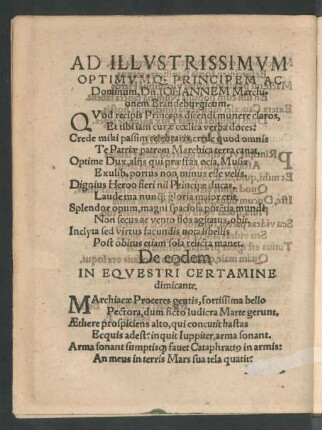 AD ILLVSTRISSIMVM
OPTIMVMQ; PRINCIPEM AC
Dominum, Dn. IOHANNEM Marchi-
onem Brandeburgicum.
QVod recipis Princeps dicendi munere claros,
Et tibi tam curæ cœlica verba doces:
Crede mihi passim celebraris, crede quod omnis
Te Patriæ patrem Marchica terra canat.
Optime Dux, aliis qui præstas ocia, Musis
Exulib, portus non minus esse velis.
Dignius Heroo fieri nil Principe ducas,
Laude tua nunq; gloria maior erit.
Splendor opum, magni spaciosa potentia mundi
Non secus ac vento flos agitatus, obit.
Inclyta sed virtus facundis nota libellis
Post obitus etiam sola relicta manet.
De eodem
IN EQVESTRI CERTAMINE
dimicante.
MArchiacæ Proceres gentis, fortissima bello
Pectora, dum ficto ludicra Marte gerunt,
Æthere prospiciens alto, qui concutit hastas
Ecquis adest: inquit Iuppiter, arma sonant.
Arma sonant sumptisq; fauet Cataphractꝰ in armis:
An meus in terris Mars sua tela quatit: